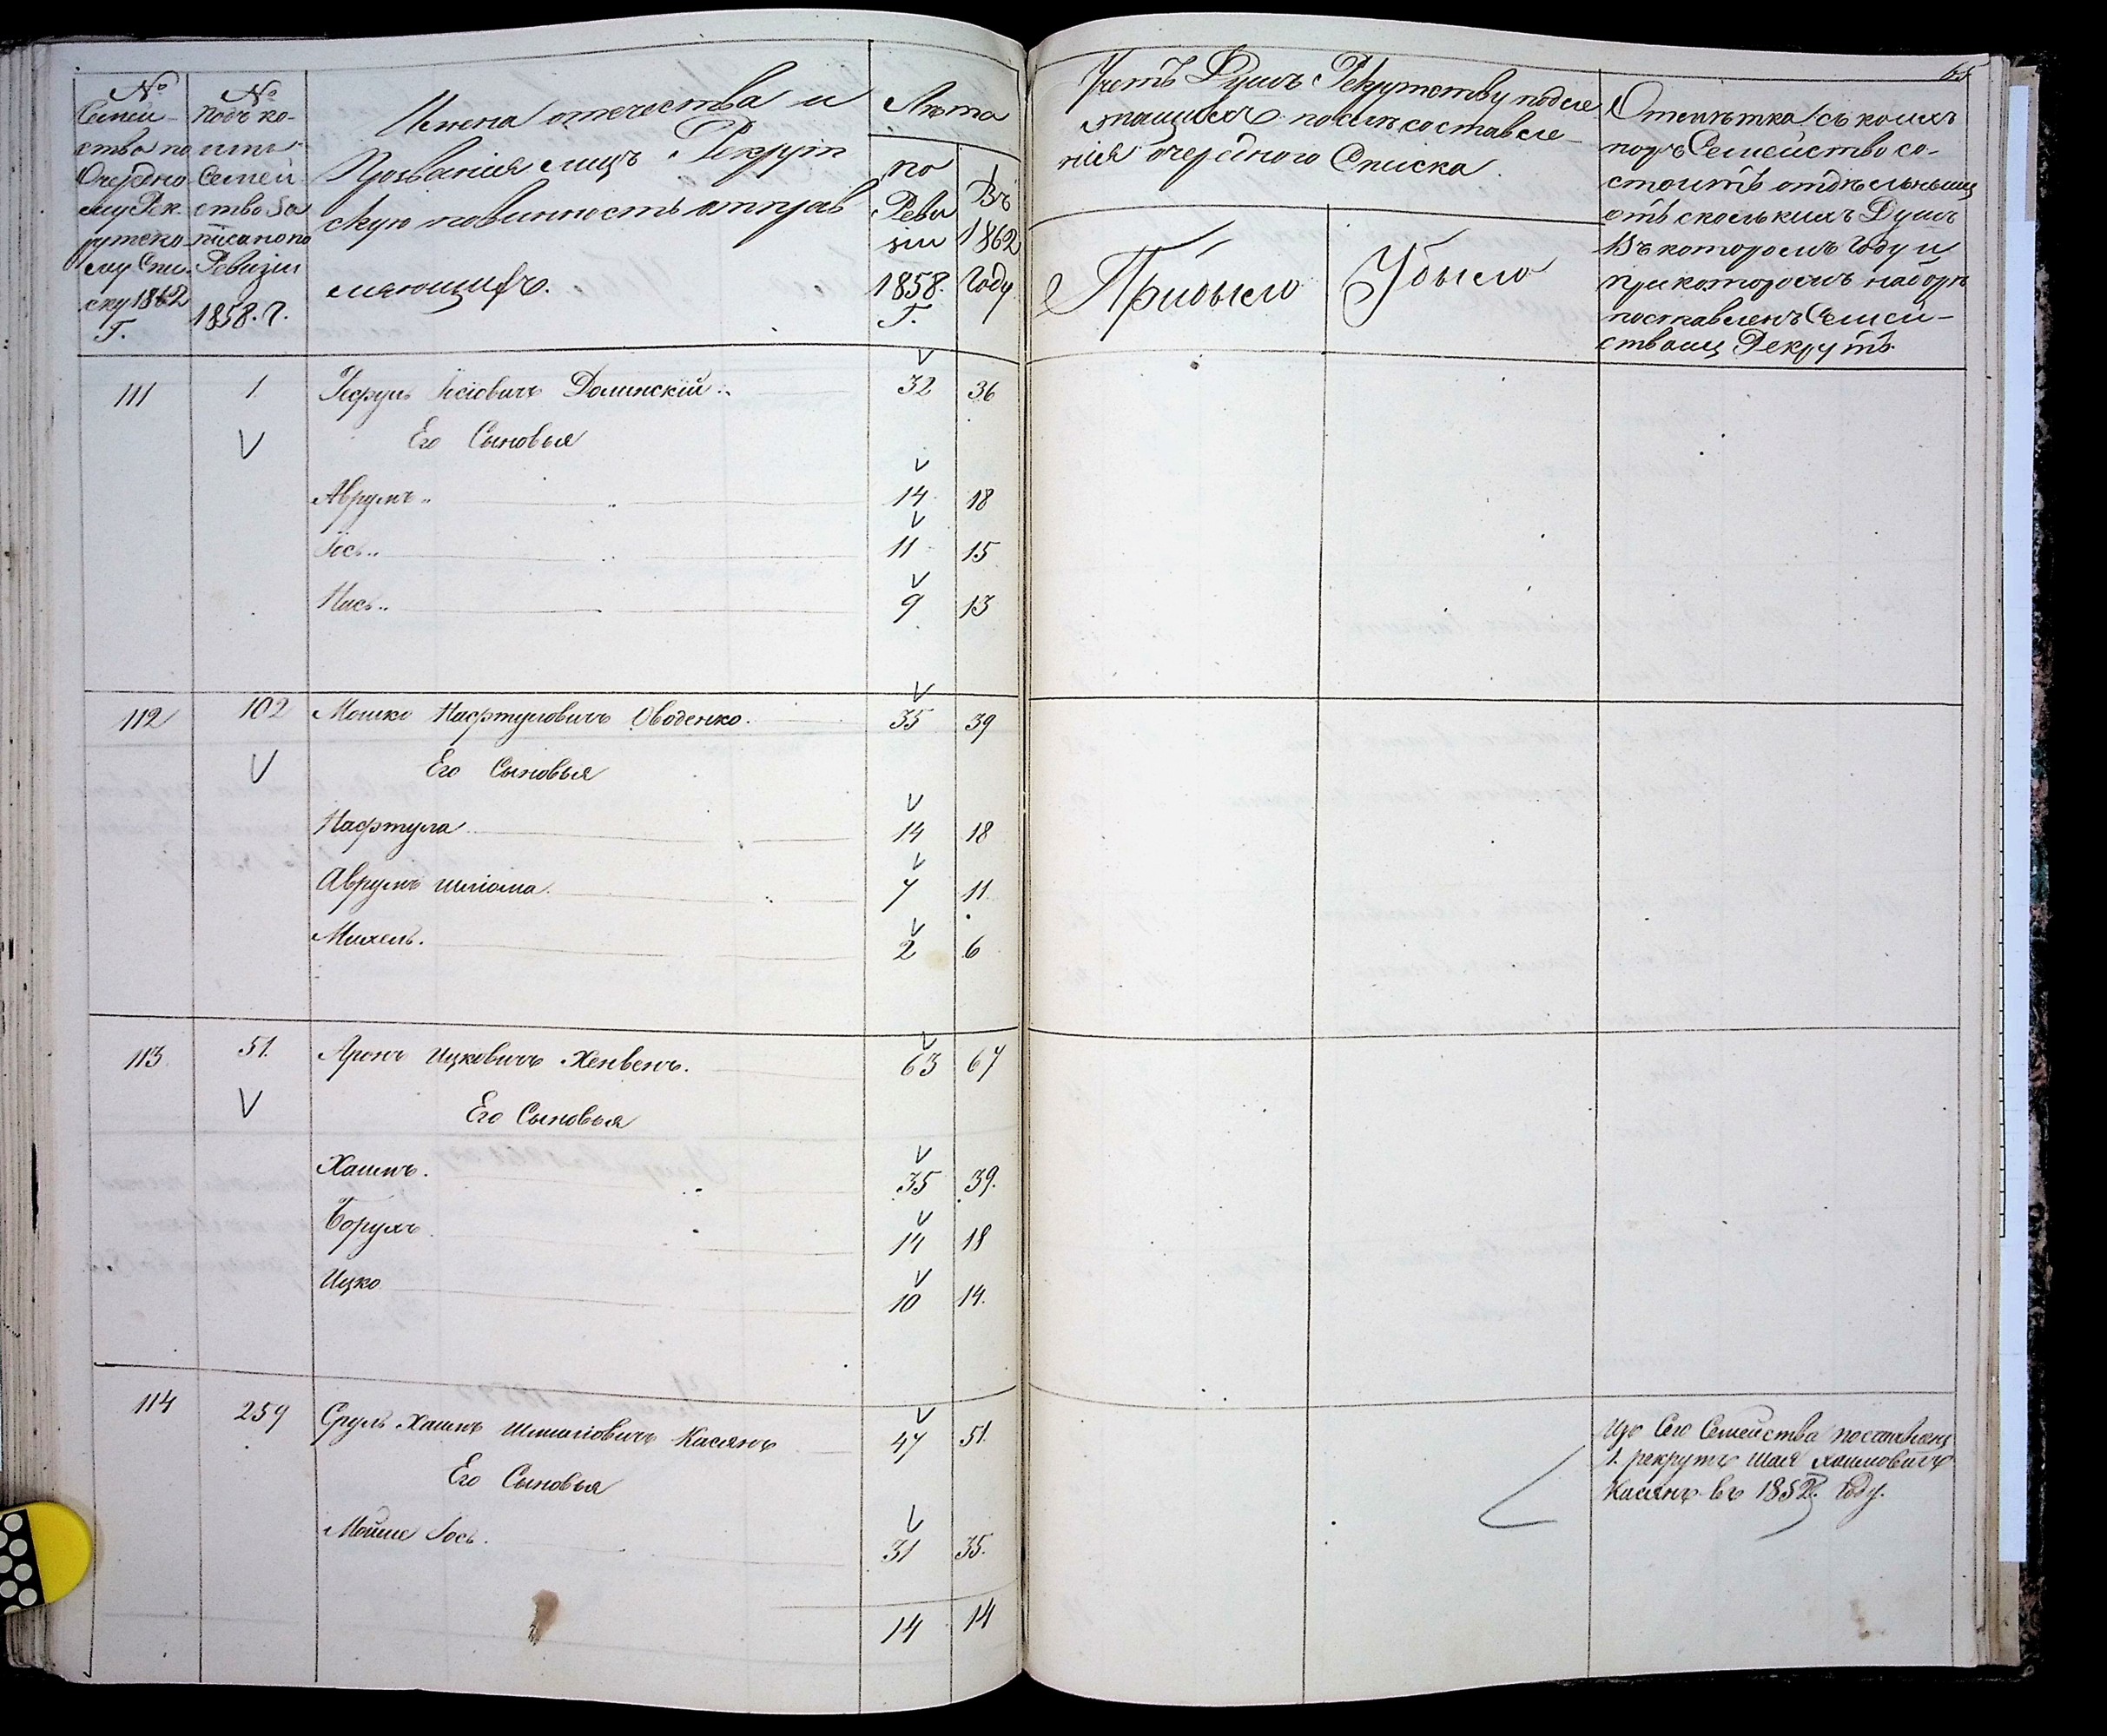 65
№
Семей-
ство по
Очередно
му Рек-
рутско-
му Спи-
ску 1862
Г.
№
Подъ ко-
имъ
Семей
ство За
писано по
Ревизіи
1858. г.
Имена отечества и
Прозванія лицъ Рекрут
скую повинность отправ
ляющихъ.
Лѣта
по
Реви
зіи
1858.
Г.
Въ
1862
Году
Учетъ Душъ Рекрутству подле
жащихъ послѣ составле-
нія очереднаго Списка.
Прибыло
Убыло
Отмѣтка съ коихъ
поръ Семейство со-
стоитъ отдѣльнымъ
отъ сколькихъ Душъ
Въ которомъ Году и
при которомъ наборѣ
поставленъ Семей-
ствомъ Рекрутъ.
111 1 Іосіовичъ Долинскій 32 36
Его Сыновья
Аврумъ 14 18
Іось 11 15
Нись 9 13
112 102 Мошко Нафтуловичъ Оводенко. 35 39
Его Сыновья
Нафтула 14 18
Аврумъ Шліома. 7 11.
Михель. 2 6
113. 51. Аронъ Ицковичъ Хенвенъ. 63 67
Его Сыновья
Хаимъ. 35 39.
Борухъ. 14 18
Ицко 10 14.
114 259 Сруль Хаимъ Шмиліовичъ Касянъ 47 51.
Его Сыновья
Мойше Іось. 31 35.
14 14
Изъ Сего Семейства поставленъ
1. рекрутъ Шая Хаимовичъ
Касянъ въ 1852. Году.